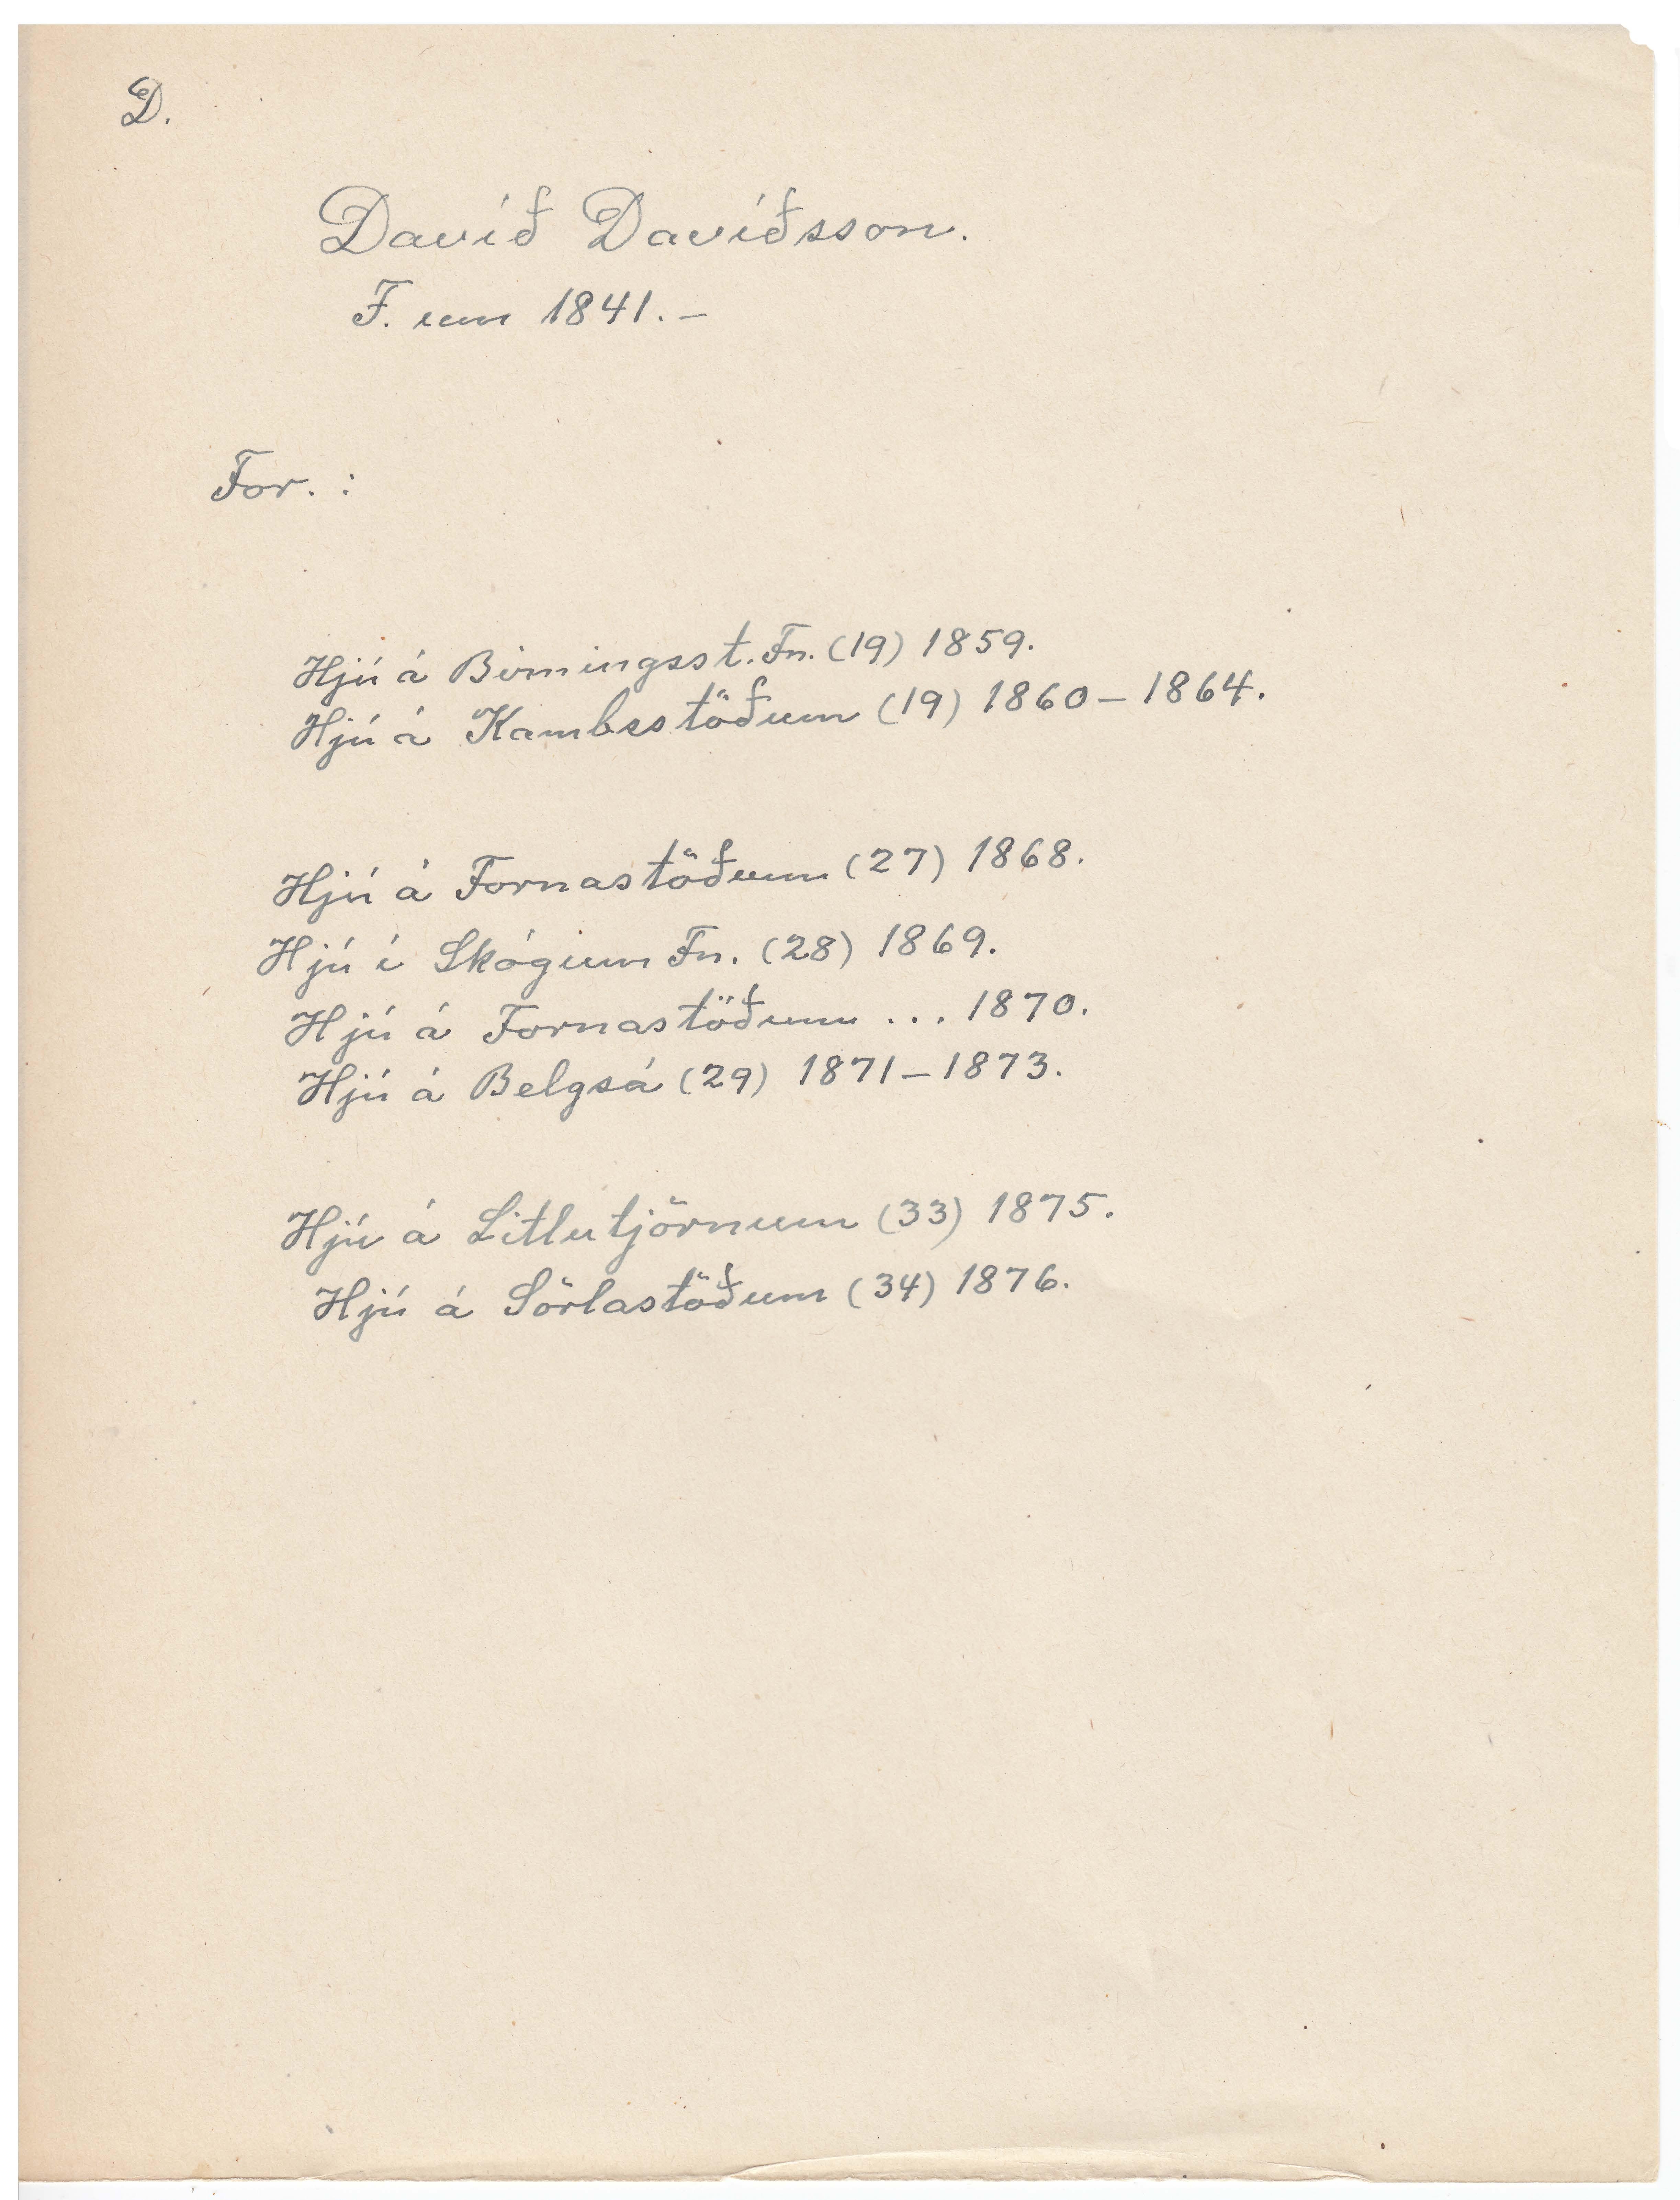 D.
Davíð Davíðsson.
F. um 1841. –
For. :
Hjú á Birningsst. Fn. (19) 1859.
Hjú á Kambsstöðum (19) 1860 – 1864.
Hjú á Fornastöðum (27) 1868.
Hjú í Skógum Fn. (28) 1869.
Hjú á Fornastöðum ... 1870.
Hjú á Belgsá (29) 1871 – 1873.
Hjú á Litlutjörnum (33) 1875.
Hjú á Sörlastöðum (34) 1876.